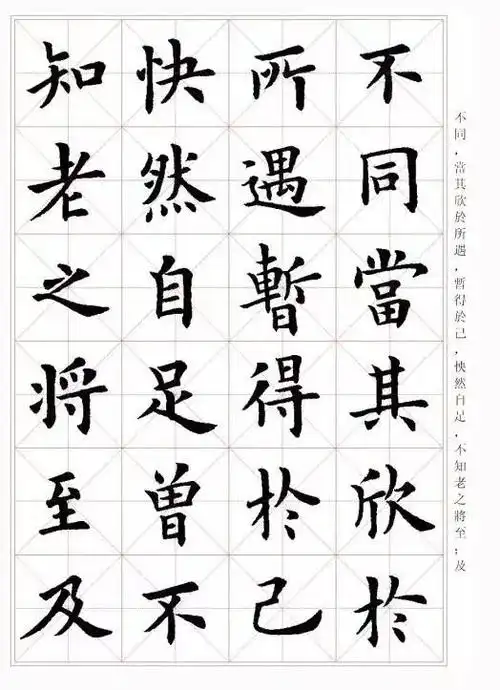 不同，當其欣於所遇，暫得於己，怏然自足，不知老之將至；及
不同當其欣於
所遇暫得於己
快然自足曾不
知老之将至及